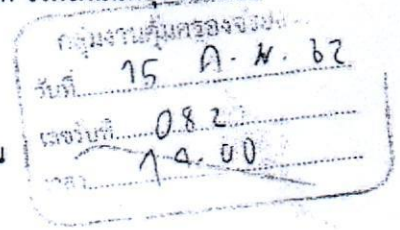 กลุ่มงานคุ้มครองจริย
วันที่ 15 ก.พ. 62
เลขรับที่ 082
เวลา 14.00